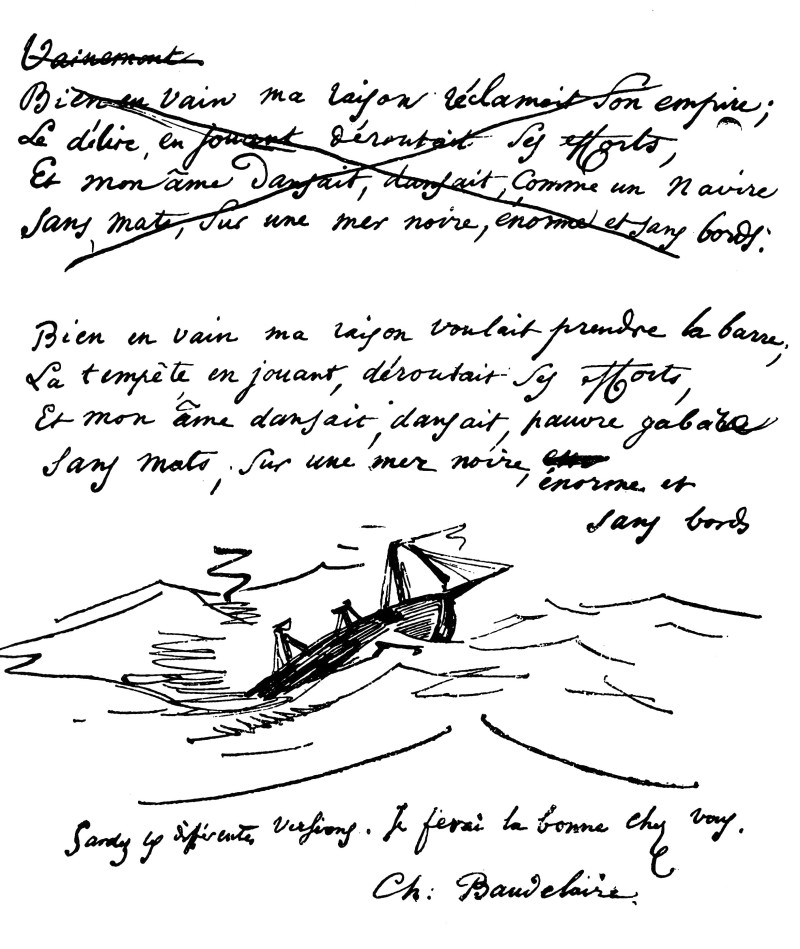 Vainement
Bien en vain ma raison réclamait son empire;
Le délire, en jouant déroutait ses efforts,
Et mon âme dansait, dansait, comme un navire
Sans mats, sur une mer noire, énorme et sans bords.
Bien en vain ma raison voulait prendre la barre,
La tempête, en jouant, déroutait ses efforts,
Et mon âme dansait, dansait, pauvre gabare
Sans mats, sur une mer noire, énorme et
sans bords
Gardez les différentes versions. Je ferai la bonne chez vous.
Ch: Baudelaire.